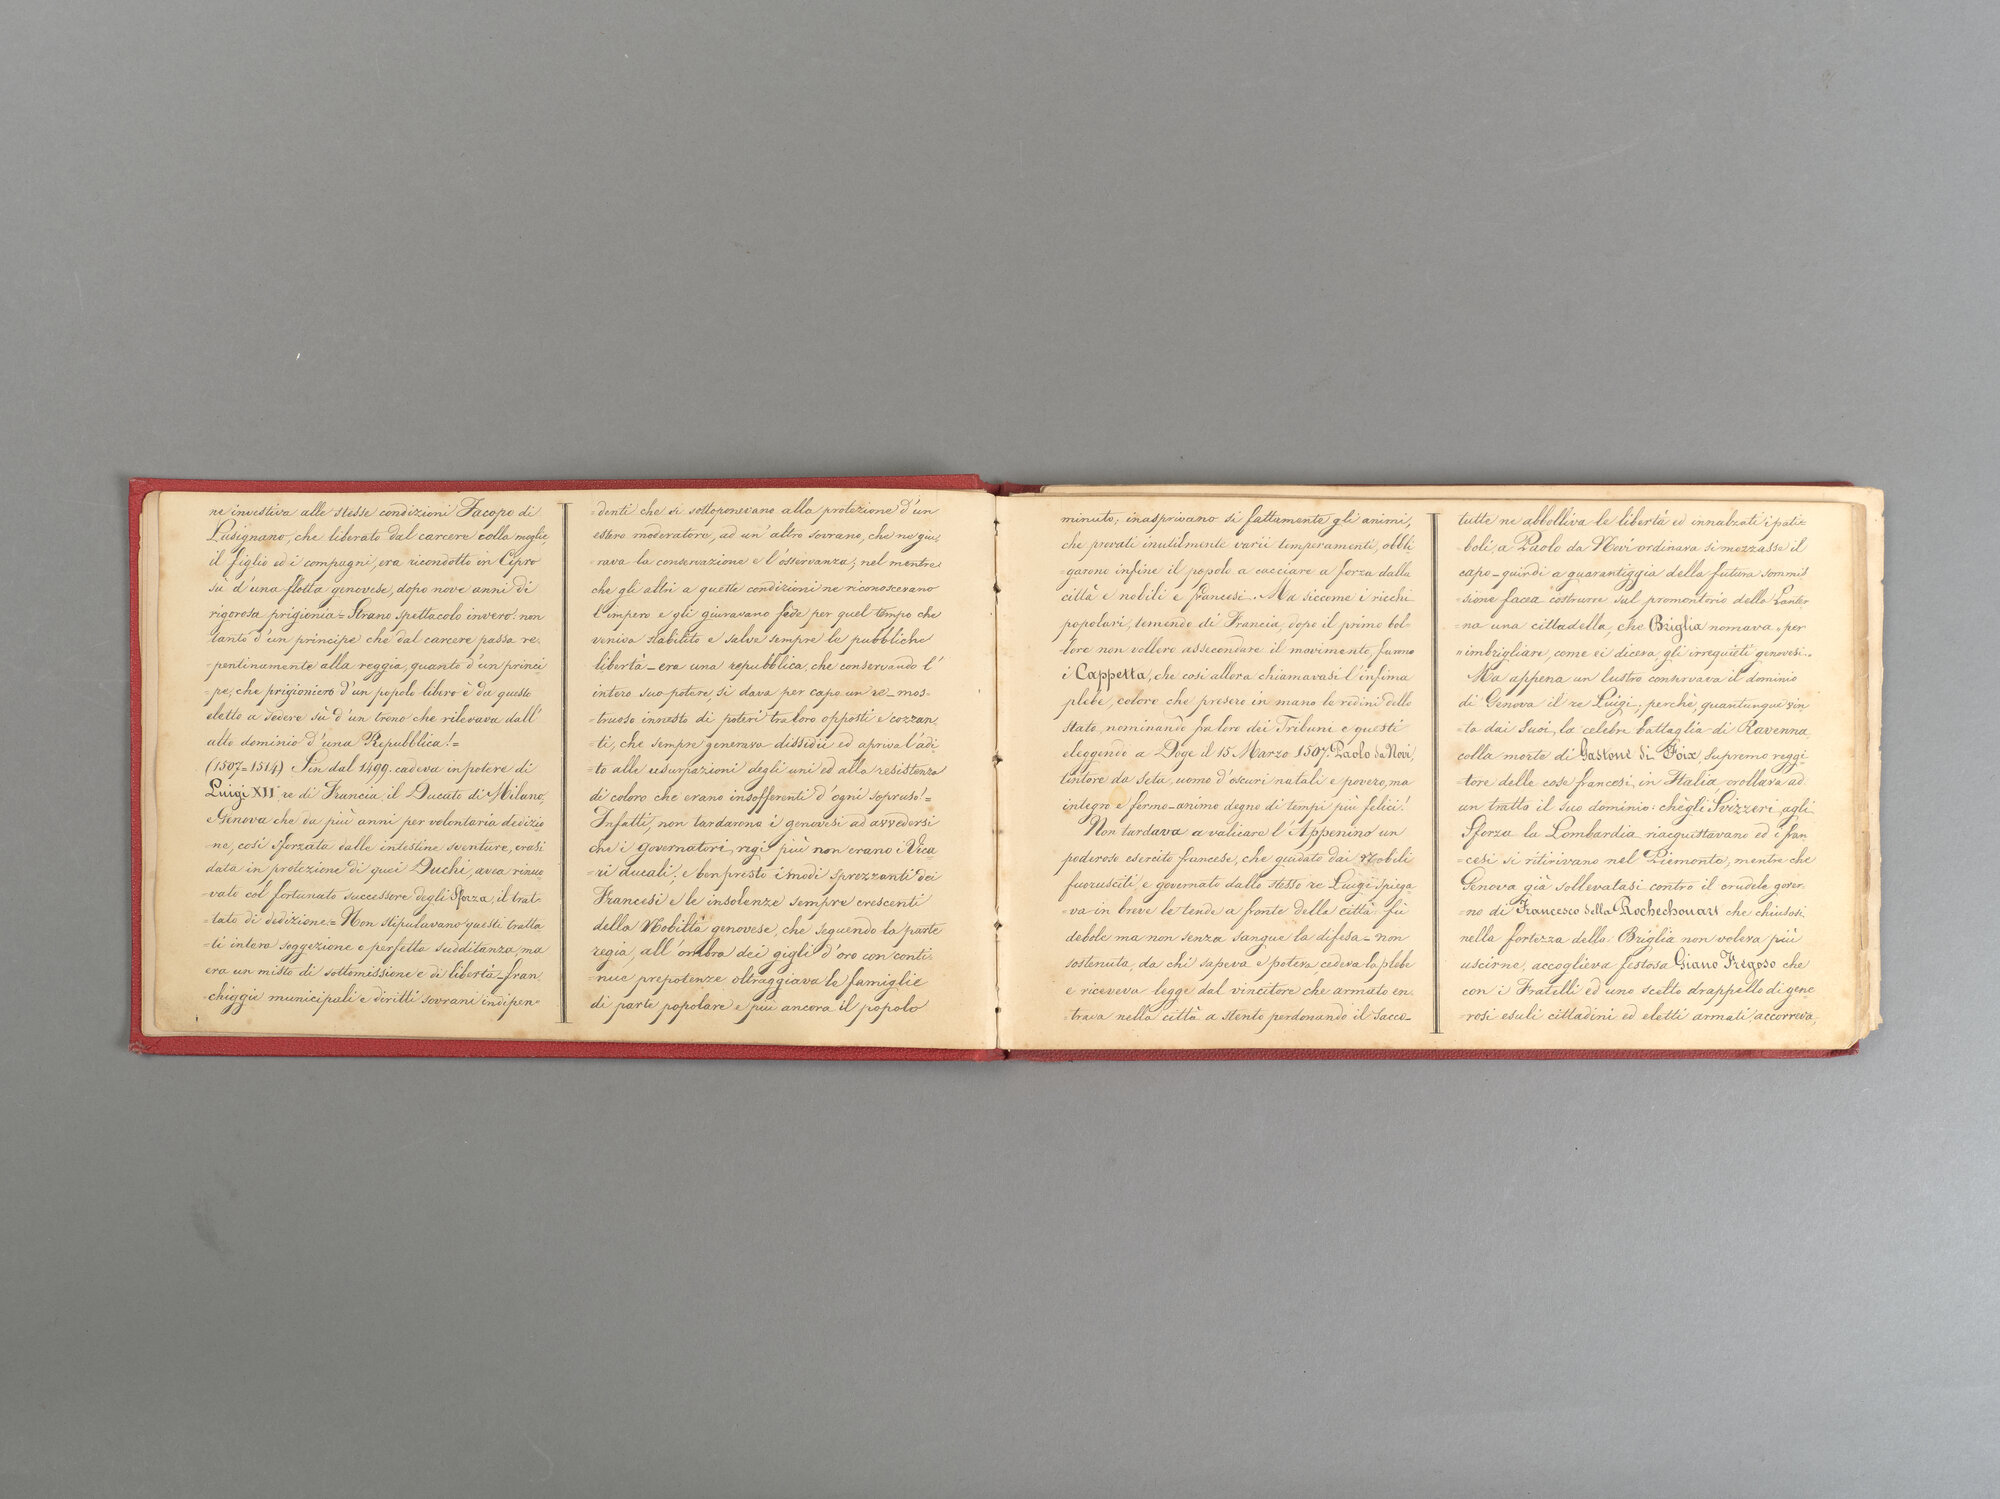 ne investiva alle stesse condizioni Jacopo di
Lusignano, che liberato dal carcere colla moglie,
il figlio ed i compagni, era ricondotto in Cipro
sù d'una flotta genovese, dopo nove anni di
rigorosa prigionia = Strano spettacolo invero! non
tanto d'un principe che dal carcere passa re-
=pentinamente alla reggia, quanto d'un princi
=pe, che prigioniero d'un popolo libero è da questo
eletto a sedere sù d'un trono che rilevava dall'
alto dominio d'una Repubblica! =
(1507=1514) Sin dal 1499. cadeva in potere di
Luigi XII re di Francia, il Ducato di Milano,
e Genova che da più anni per volontaria dedizio
=ne, così sforzata dalle intestine sventure, erasi
data in protezione di quei Duchi, avea rinno
=vato col fortunato successore degli Sforza, il trat=
=tato di dedizione = Non stipulavano questi tratta
=ti intera soggezione e perfetta sudditanza, ma
era un misto di sottomissione e di libertà_fran_
=chiggie municipali e diritti sovrani indipen=
=denti che si sottoponevano alla protezione d'un
estero moderatore, ad un'altro sovrano, che ne giu,
=rava la conservazione e l'osservanza; nel mentre
che gli altri a queste condizioni ne riconoscevano
l'impero e gli giuravano fede per quel tempo che
veniva stabilito e salve sempre le pubbliche
libertà_era una repubblica, che conservando l'
intero suo potere, si dava per capo un re_mos=
=truoso innesto di poteri tra loro opposti e cozzan
=ti, che sempre generava dissidii ed apriva l'adi
=to alle usurpazioni degli uni ed alla resistenza
di coloro che erano insofferenti d'ogni sopruso! =
Infatti, non tardarono i genovesi ad avvedersi
che i governatori regi più non erano i Vica=
=ri ducali, e ben presto i modi sprezzanti dei
Francesi e le insolenze sempre crescenti
della Nobiltà genovese, che seguendo la parte
regia, all'ombra dei gigli d'oro con conti=
=nue prepotenze oltraggiava le famiglie
di parte popolare e più ancora il popolo
minuto; inasprivano sì fattamente gli animi,
che provati inutilmente varii temperamenti, obbli
=garono infine il popolo a cacciare a forza dalla
città e nobili e francesi_Ma siccome i ricchi
popolari, temendo di Francia, dopo il primo bol=
=lore non vollero assecondare il movimento, furono
i Cappetta, che così allora chiamavasi l'infima
plebe, coloro che presero in mano le redini dello
stato, nominando fra loro dei Tribuni e questi
eleggendo a Doge il 15 Marzo 1507. Paolo da Novi,
tintore da seta, uomo d'oscuri natali e povero, ma
integro e fermo_animo degno di tempi più felici!
Non tardava a valicare l'Appenino un
poderoso esercito francese, che guidato dai Nobili
fuorusciti, e governato dallo stesso re Luigi spiega
=va in breve le tende a fronte della città_fù
debole ma non senza sangue la difesa_non
sostenuta, da chi sapeva e poteva cedeva la plebe
e riceveva legge dal vincitore che armato en=
=trava nella città a stento perdonando il sacco_
tutte ne abbolliva le libertà ed innalzati i pati=
=boli, a Paolo da Novi ordinava si mozzasse il
capo_quindi a guarantiggia della futura sommis
=sione facea costrurre sul promontorio della Lanter
=na una cittadella, che Briglia nomava "per
"imbrigliare, come ei diceva, gli irrequieti genovesi."
Ma appena un lustro conservava il dominio
di Genova il re Luigi; perchè, quantunque vin=
=ta dai suoi, la celebre battaglia di Ravenna,
colla morte di Gastone di Foix, supremo reggi=
=tore delle cose francesi, in Italia, crollava ad
un tratto il suo dominio: chè gli Svizzeri, agli
Sforza la Lombardia riacquistavano ed i fran=
=cesi si ritirivano nel Piemonte, mentre che
Genova già sollevatasi contro il crudele gover=
=no di Francesco della Rochechouart che chiusosi
nella fortezza della Briglia non voleva più
uscirne, accoglieva festosa Giano Fregoso che
con i Fratelli ed uno scelto drappello di gene
=rosi esuli cittadini ed eletti armati, accorreva,